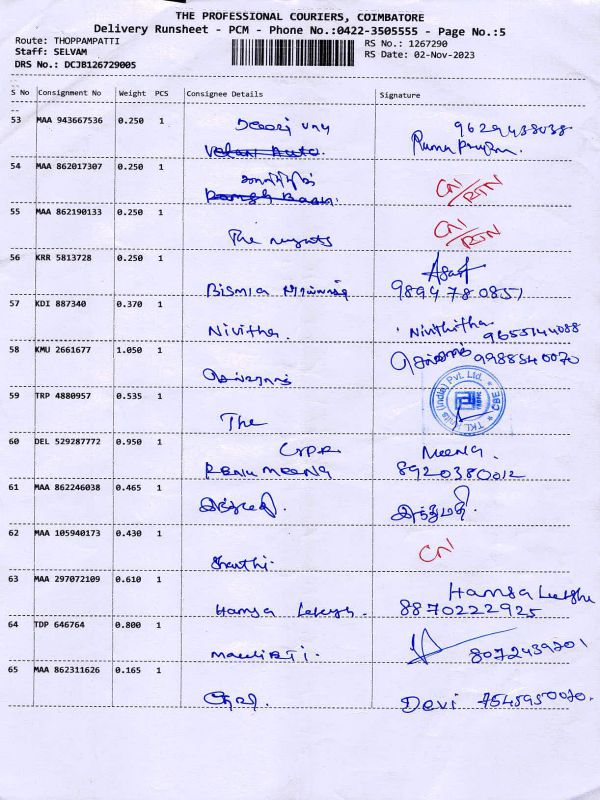 THE PROFESSIONAL COURIERS, COIMBATORE
Delivery Runsheet - PCM - Phone No.:0422-3505555 - Page No.:5
Route: THOPPAMPATTI RS No.: 1267290
Staff: SELVAM RS Date: 02-Nov-2023
DRS No.: DCJB126729005
S No Consignment No Weight PCS Consignee Details Signature
53 MAA 943667536 0.250 1
9629438038
54 MAA 862017307 0.250 1
CN/RTN
55 MAA 862190133 0.250 1
CN/RTN
The
56 KRR 5813728 0.250 1
Asarf
Bismia 9894780851
57 KDI 887340 0.370 1
Nivitha. Nivithitha 9655144088
58 KMU 2661677 1.050 1
9988540070
செல்வராஜ்
59 TRP 4880957 0.535 1
The
TKL (India) Pvt. Ltd. CBE
60 DEL 529287772 0.950 1
CRPR Meena.
RENU MEENA 8920380012
61 MAA 862246038 0.465 1
இந்துமதி. இந்துமதி.
62 MAA 105940173 0.430 1
CN
Shanthi.
63 MAA 297072109 0.610 1
Hamsa Lekgha
Hamsa 8870222925
64 TDP 646764 0.800 1
8072439201
65 MAA 862311626 0.165 1
Devi 7545950070.